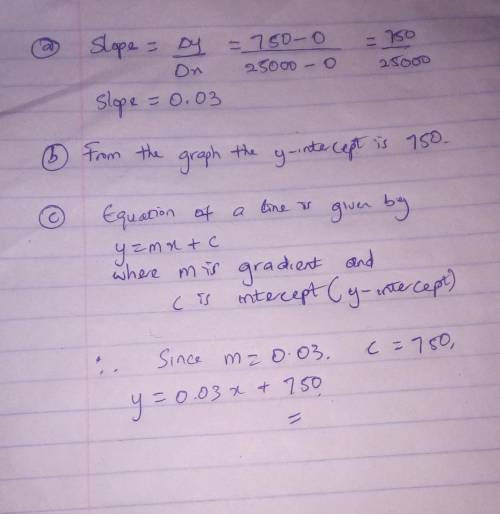 (a) Slope = Dy/Dx = 750-0/25000-0 = 750/25000
Slope = 0.03
(b) From the graph the y-intercept is 750.
(c) Equation of a line is given by
y=mx+c
where m is gradient and
c is intercept (y-intercept)
∴ Since m=0.03. c=750,
y=0.03x + 750
=